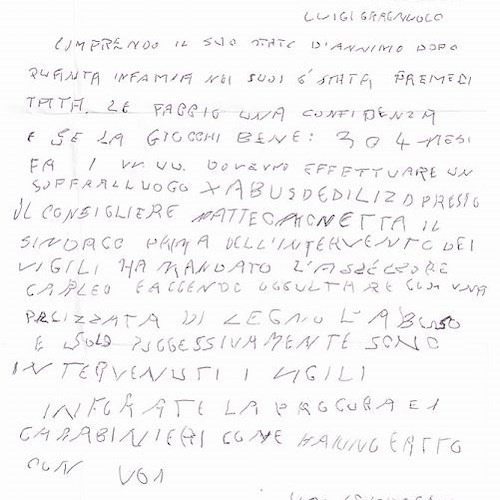 LUIGI GRAGNUOLO
COMPRENDO IL SUO STATO D'ANIMO DOPO
QUANTA INFAMIA NEI SUOI C'È STATA, PREMEDI
TATA. LE FACCIO UNA CONFIDENZA
E SE LA GIOCHI BENE: 3 O 4 MESI
FA I VV. UU. DOVEVANO EFFETTUARE UN
SOPRALLUOGO X ABUSO EDILIZIO PRESSO
IL CONSIGLIERE MATTEO IL
SINDACO PRIMA DELL'INTERVENTO DEI
VIGILI HA MANDATO L'ASSESSORE
CAPLEO FACENDO OCCULTARE CON UNA
DI LEGNO L'ABUSO
E SOLO SUCCESSIVAMENTE SONO
INTERVENUTI I VIGILI
INFORMATE LA PROCURA E I
CARABINIERI COME HANNO FATTO
CON VOI